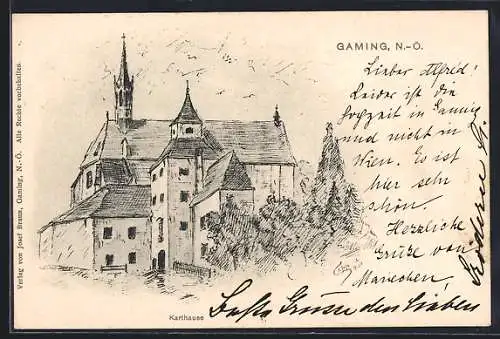 GAMING, N.-Ö.
Lieber Alfred!
Leider ist die
Hochzeit in Gaming
und nicht in
Wien. Es ist
hier sehr
schön.
Herzliche
Grüße von
Mariechen.
Beste Grüsse den Lieben
Karthause
Verlag von Josef Braun, Gaming, N.-Ö. Alle Rechte vorbehalten.